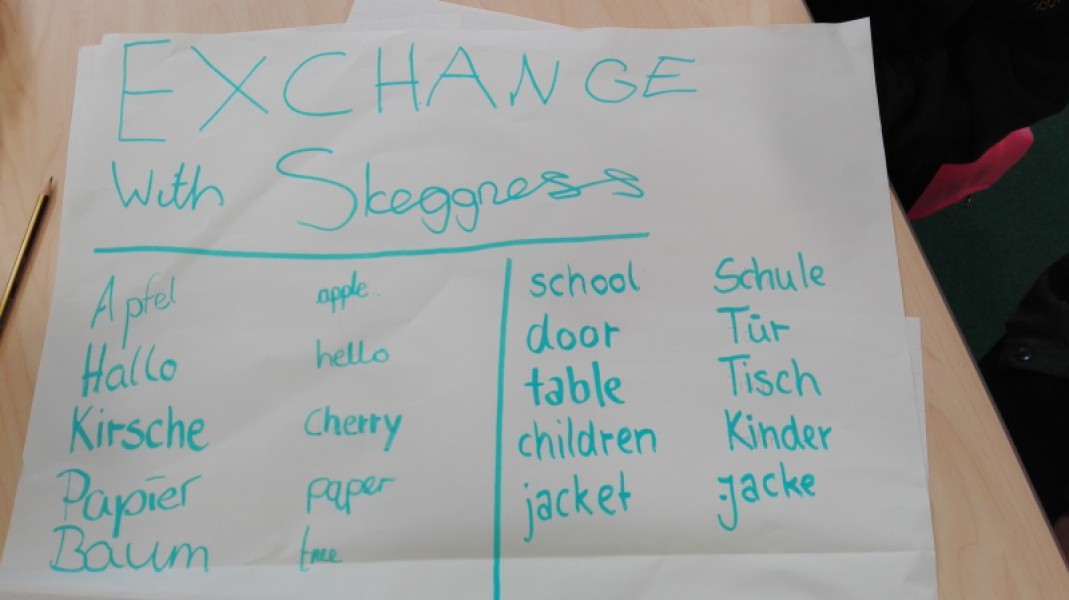 EXCHANGE
With Skeggness
Apfel apple.
Hallo hello
Kirsche Cherry
Papier paper
Baum tree
school Schule
door Tür
table Tisch
children Kinder
jacket Jacke